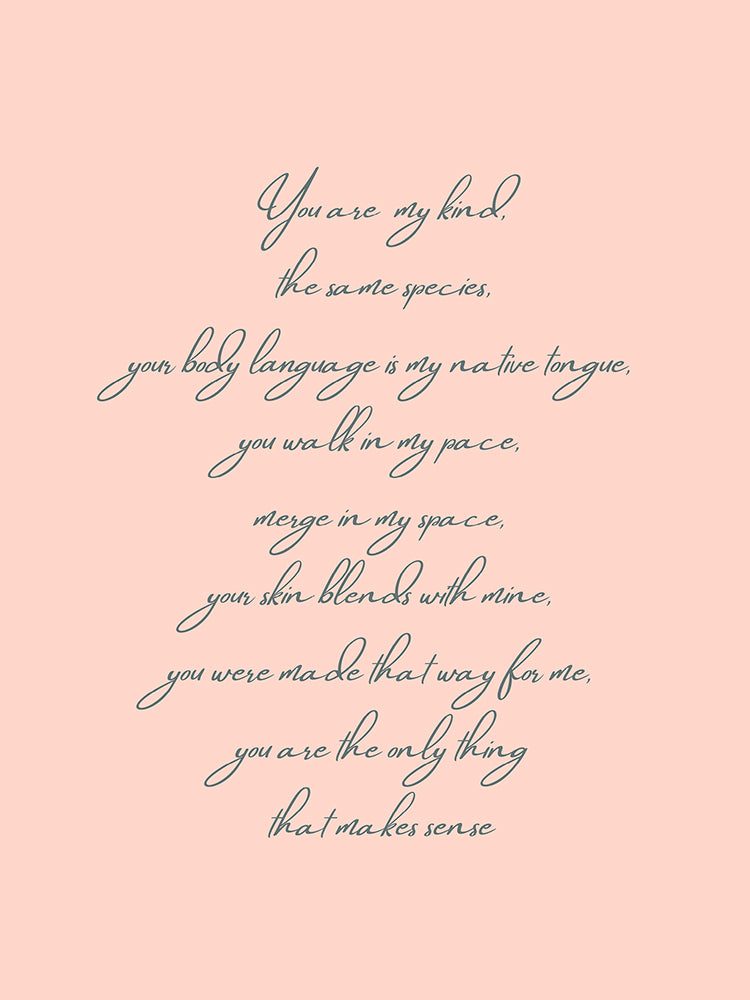 You are my kind,
the same species,
your body language is my native tongue,
you walk in my pace,
merge in my space,
your skin blends with mine,
you were made that way for me,
you are the only thing
that makes sense